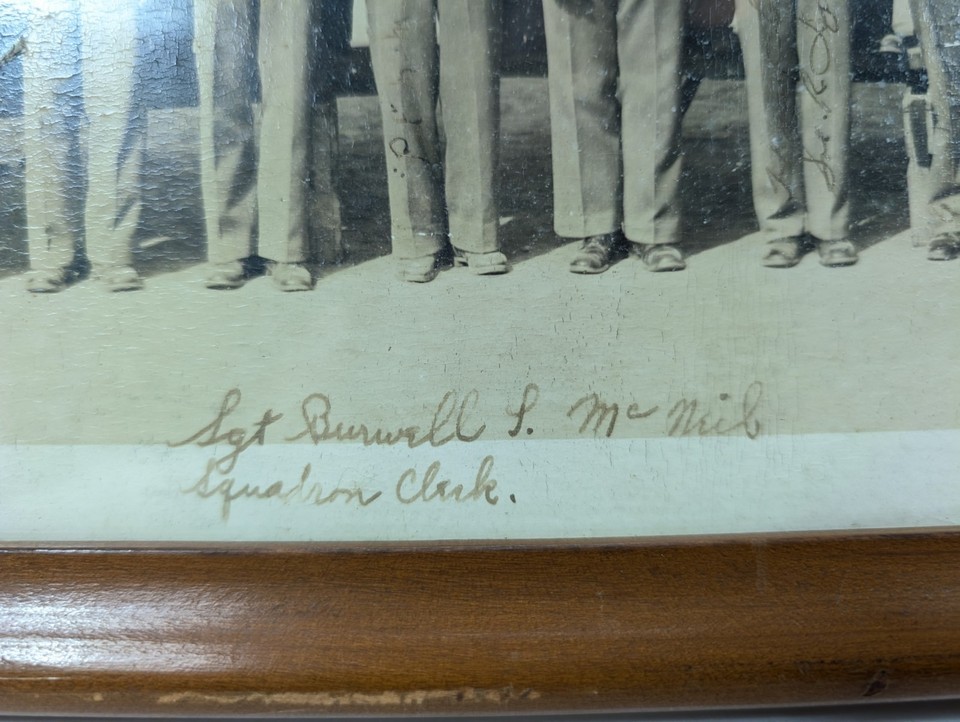 Sgt Burwell S. McNeil
Squadron Clerk.